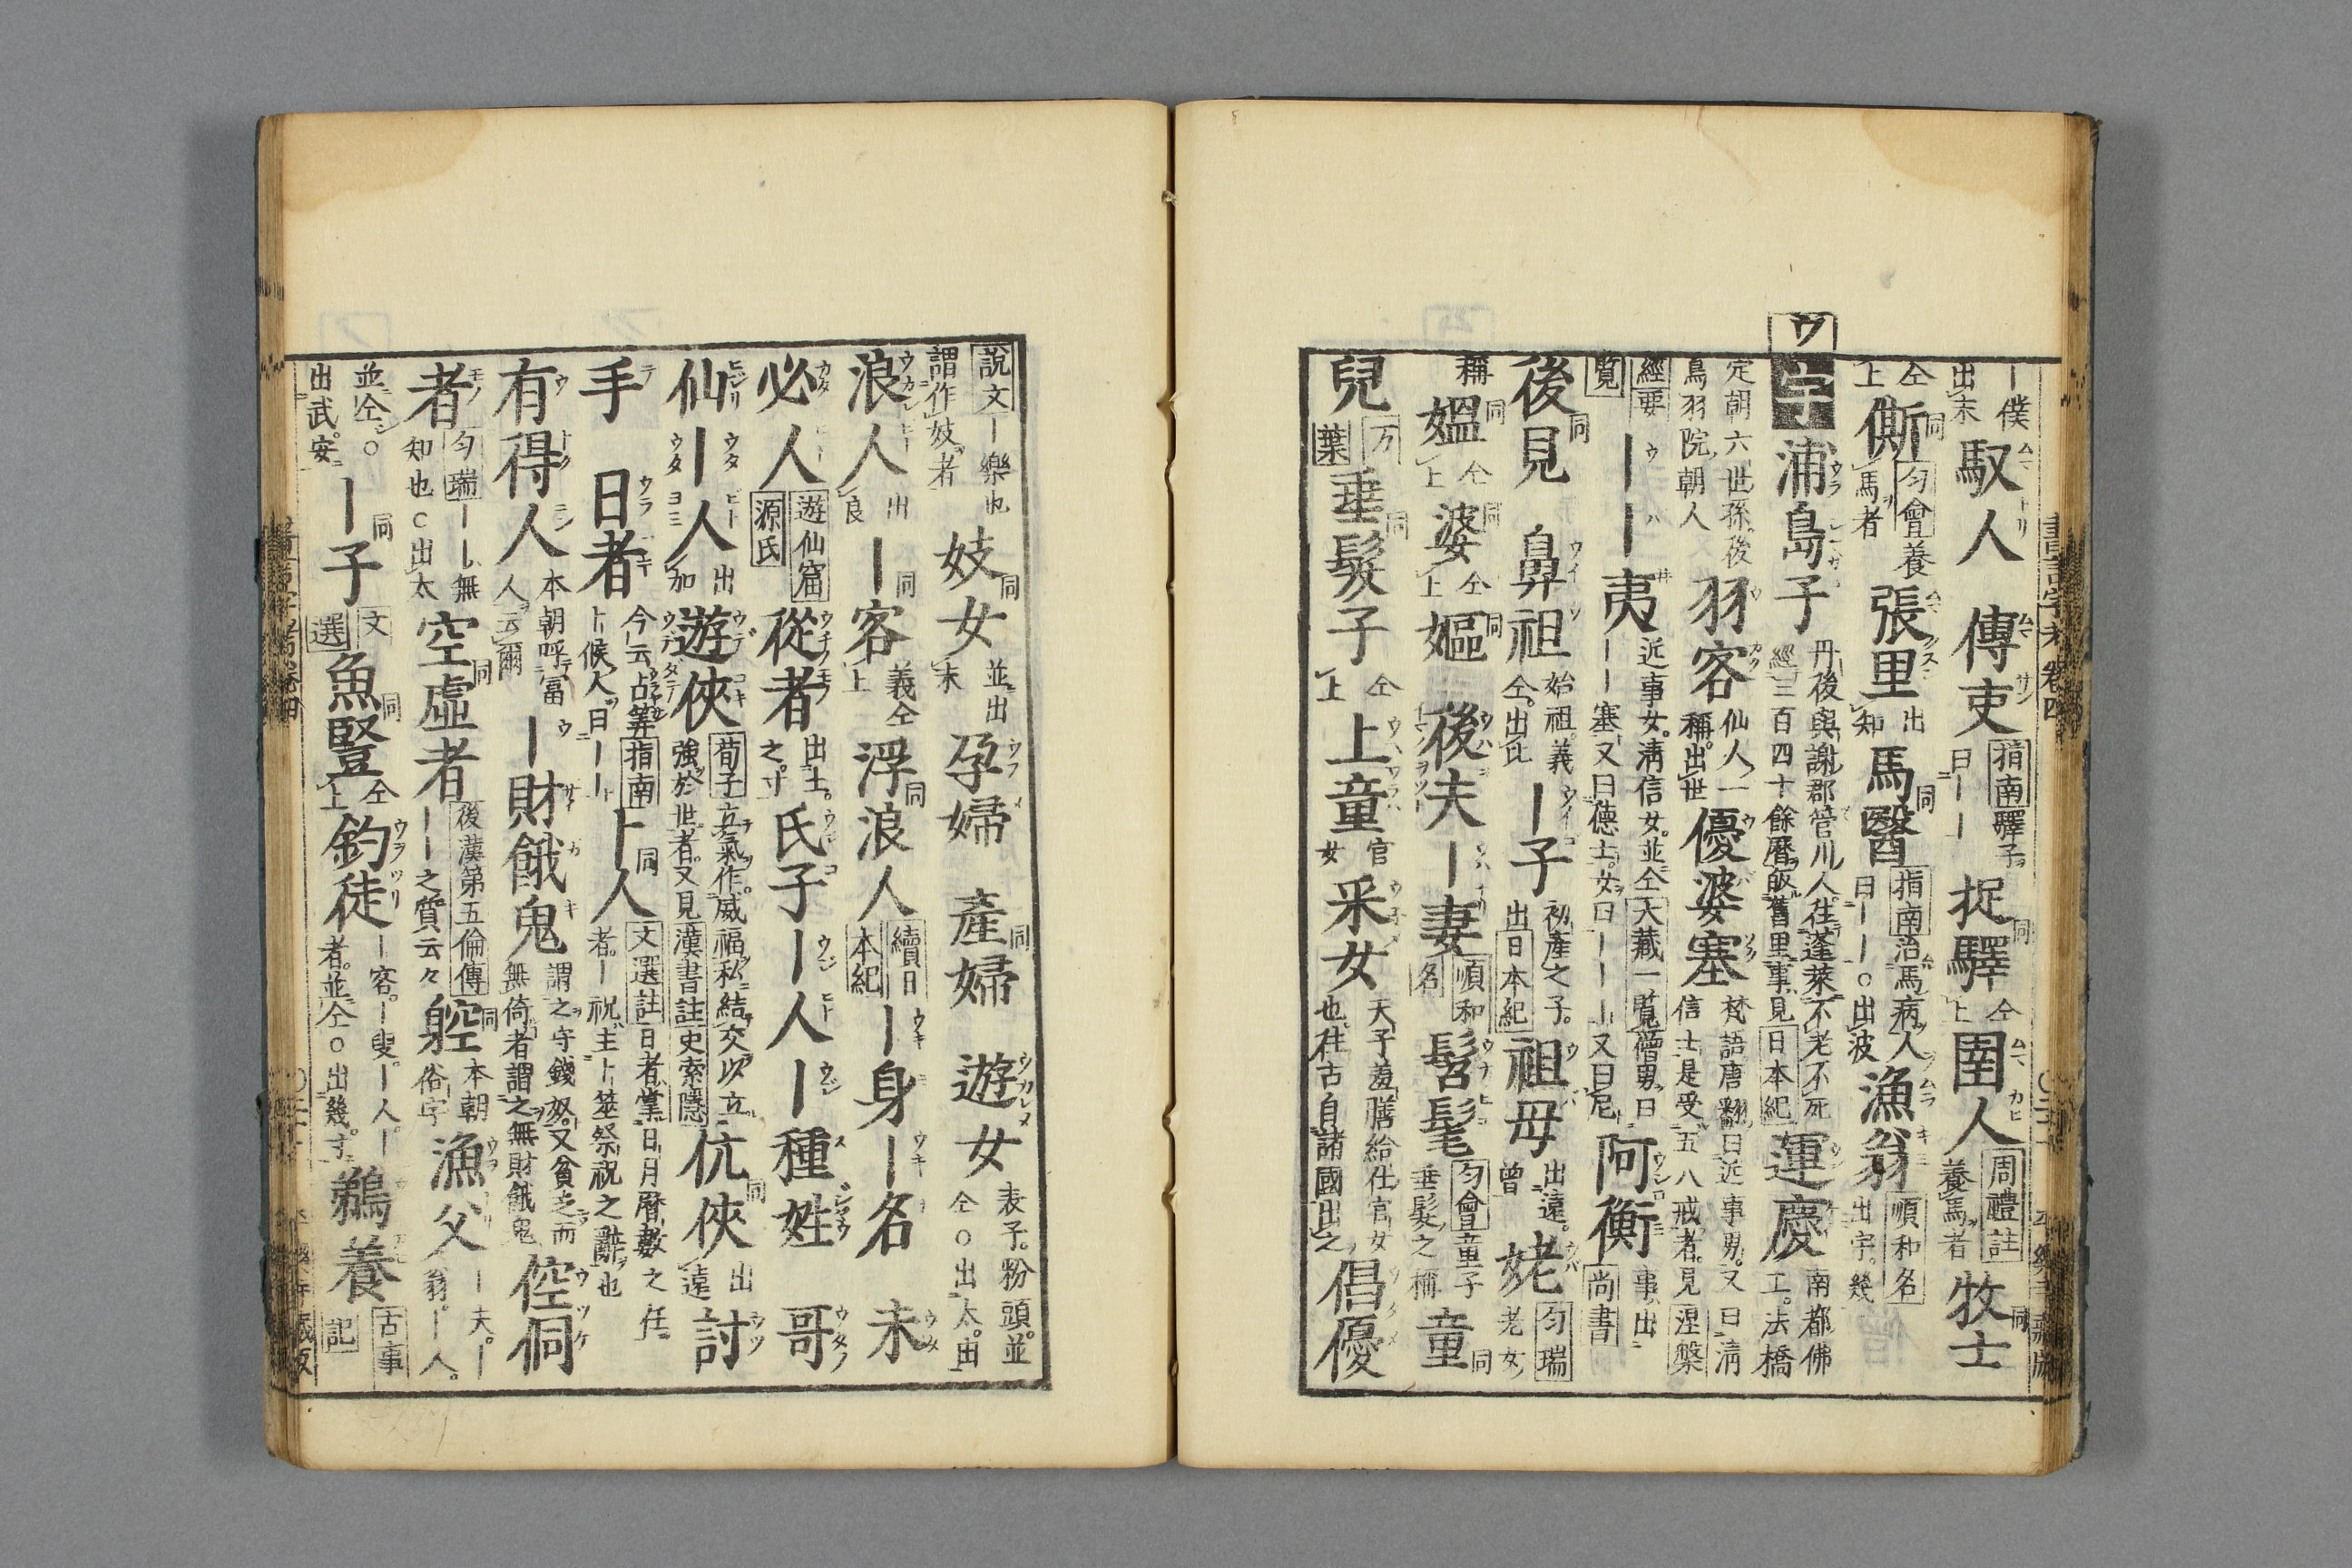 ｜僕
出末
馭人
傳吏
指南驛子
曰｜｜
捉驛
仝上
圉人
周禮註
養馬者
牧士
仝上
㒋
匀會養
馬者
張里
出知
馬醫
指南治馬病人
曰｜｜○出波
漁翁
順和名
出宇幾
ウ
宇
浦島子
丹後與謝郡管川人往蓬萊不老不死
經三百四十餘曆飯舊里事見日本紀
運慶
南都佛
工法橋
定朝六世孫後
鳥羽院朝人
羽客
仙人一
稱出世
優婆塞
梵語唐翻曰近事男又曰淸
信士是受五八戒者見涅槃
經要
覧
｜｜夷
近事女淸信女並仝大藏一覧僧男曰
｜｜塞又曰德士女曰｜｜｜又曰尼
阿衡
事出
尚書
後見
鼻祖
始祖義
仝出比
｜子
初產之子
出日本紀
祖母
出遠
曾
姥
匀瑞
老女
稱
媼
仝上
婆
仝上
嫗
後夫
｜妻
順和
名
髫髦
匀會童子
垂髮之稱
童
兒
万
葉
垂髮子
仝上
上童
官
女
釆女
天子羞膳給仕官女
也往古自諸國出之
倡優
說文｜樂也
謂作妓者
妓女
並出
末
孕婦
產婦
遊女
表子粉頭並
仝○出太由
浪人
出
良
｜客
義仝
上
浮浪人
續日
本紀
｜身
｜名
未
必人
遊仙窟
源氏
從者
出土
之寸
氏子
｜人
｜種姓
哥
仙
｜人
出
加
遊俠
荀子立氣作威福私結交以立
強於世者又見漢書註史索隱
伉俠
出
遠
討
手
日者
今云占筭指南
卜候人曰｜｜
卜人
文選註日者掌日月曆數之任
者｜祝主卜筮祭祝之辭也
有得人
本朝呼富
人云爾
｜財餓鬼
謂之守錢奴又貧乏而
無倚者謂之無財餓鬼
倥侗
者
匀瑞｜｜無
知也○出太
空虛者
後漢第五倫傳
｜｜之質云々
躻
本朝
俗字
漁父
｜夫｜
翁｜人
並仝○
出武安
｜子
文
選
魚豎
仝上
釣徒
｜客｜叟｜人｜
者並仝○出幾寸
鵜養
古事
記